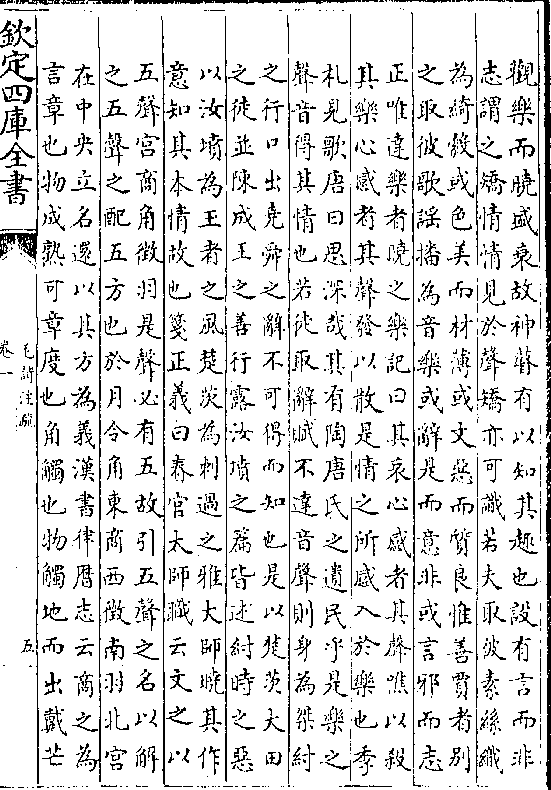 觀樂而曉盛衰故神瞽有以知其趣也設有言而非
志謂之矯情情見於聲矯亦可識若夫取彼素絲織
為綺縠或色美而材薄或文惡而質良惟善賈者別
之取彼歌謡播為音樂或辭是而意非或言邪而志
正唯達樂者曉之樂記曰其哀心感者其聲噍以殺
其樂心感者其聲發以散是情之所感入於樂也季
札見歌唐曰思深哉其有陶唐氏之遺民乎是樂之
聲音得其情也若徒取辭賦不達音聲則身為桀紂
之行口出堯舜之辭不可得而知也是以楚茨大田
之徒並陳成王之善行露汝墳之篇皆述紂時之惡
以汝墳為王者之風楚茨為刺過之雅大師曉其作
意知其本情故也箋正義曰春官太師職云文之以
五聲宫商角徵羽是聲必有五故引五聲之名以解
之五聲之配五方也於月令角東商西徵南羽北宫
在中央立名還以其方為義漢書律厯志云商之為
言章也物成熟可章度也角觸也物觸地而出戴芒
欽定四庫全書
毛詩注疏
卷一
五